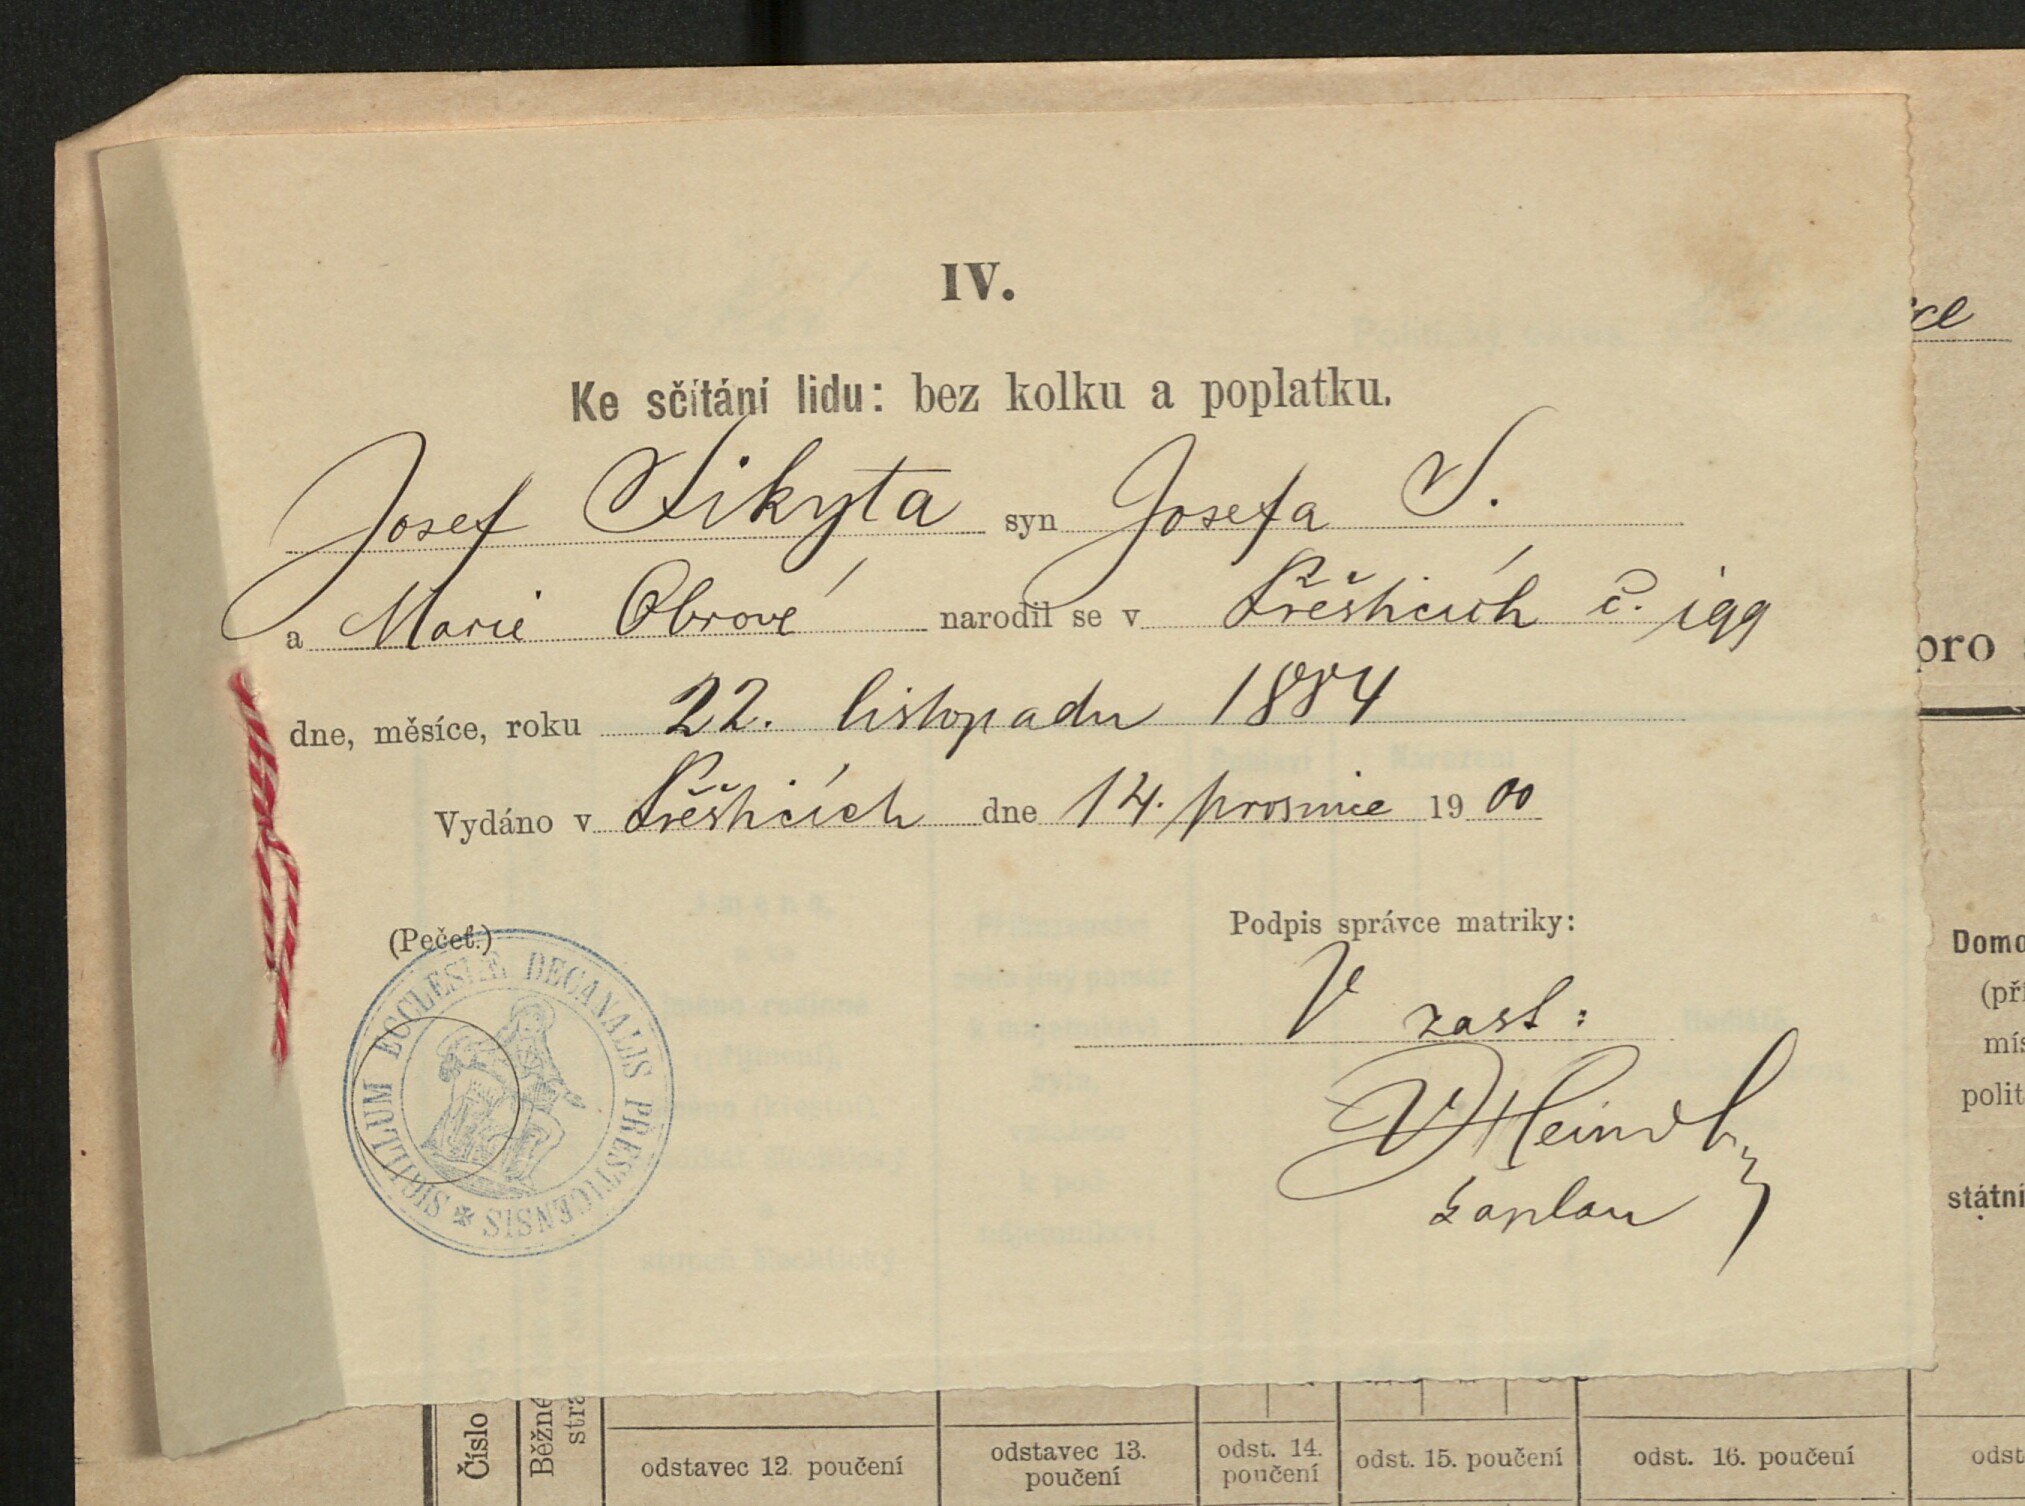 IV.
Ke sčítání lidu: bez kolku a poplatku.
Josef Sikyta syn Josefa S.
a Marie Obrové narodil se v Přešticích č. 199
dne, měsíce, roku 22. listopadu 1884
Vydáno v Přešticích dne 14. prosince 1900
(Pečeť.)
SIGILLUM ECCLESIÆ DECANALIS PŘESTICENSIS
Podpis správce matriky:
V zast:
kaplan
pro
Domo
(pří
mís
polit
státní
Číslo
Běžné
stra
odstavec 12. poučení
odstavec 13. poučení
odst. 14. poučení
odst. 15. poučení
odst. 16. poučení
odst